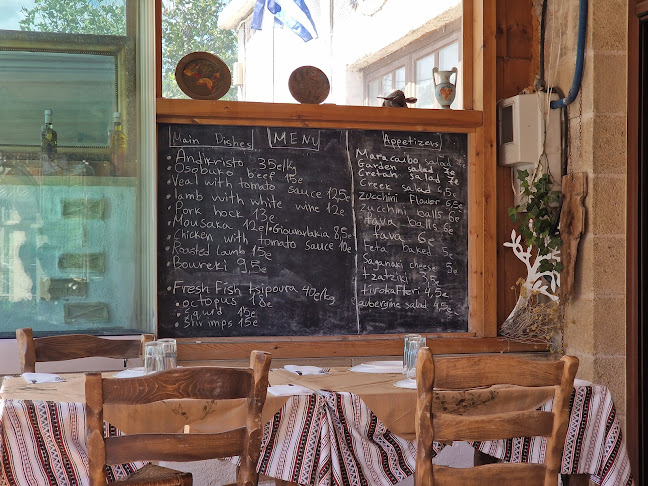 Main Dishes
MENU
Andikristo 35e/kg
Osobuko beef 15e
Veal with tomato sauce 12,5e
lamb with white wine 12e
Pork hock 13e
Mousaka 12e/Giouvarlakia 8,5e
Chicken with tomato sauce 10e
Roasted lamb 15e
Boureki 9,5e
Fresh Fish tsipoura 40e/kg
octopus 18e
squid 15e
Shrimps 15e
Appetizers
Maracaibo salad
Garden salad 7e
Cretan salad 7e
Greek salad
zucchini Flauer 6,5e
zucchini balls 6e
fava balls 6e
fava 6e
Feta baked 5e
Saganaki cheese
tzatziki
tirokafteri 4,5e
aubergine salad 4,5e